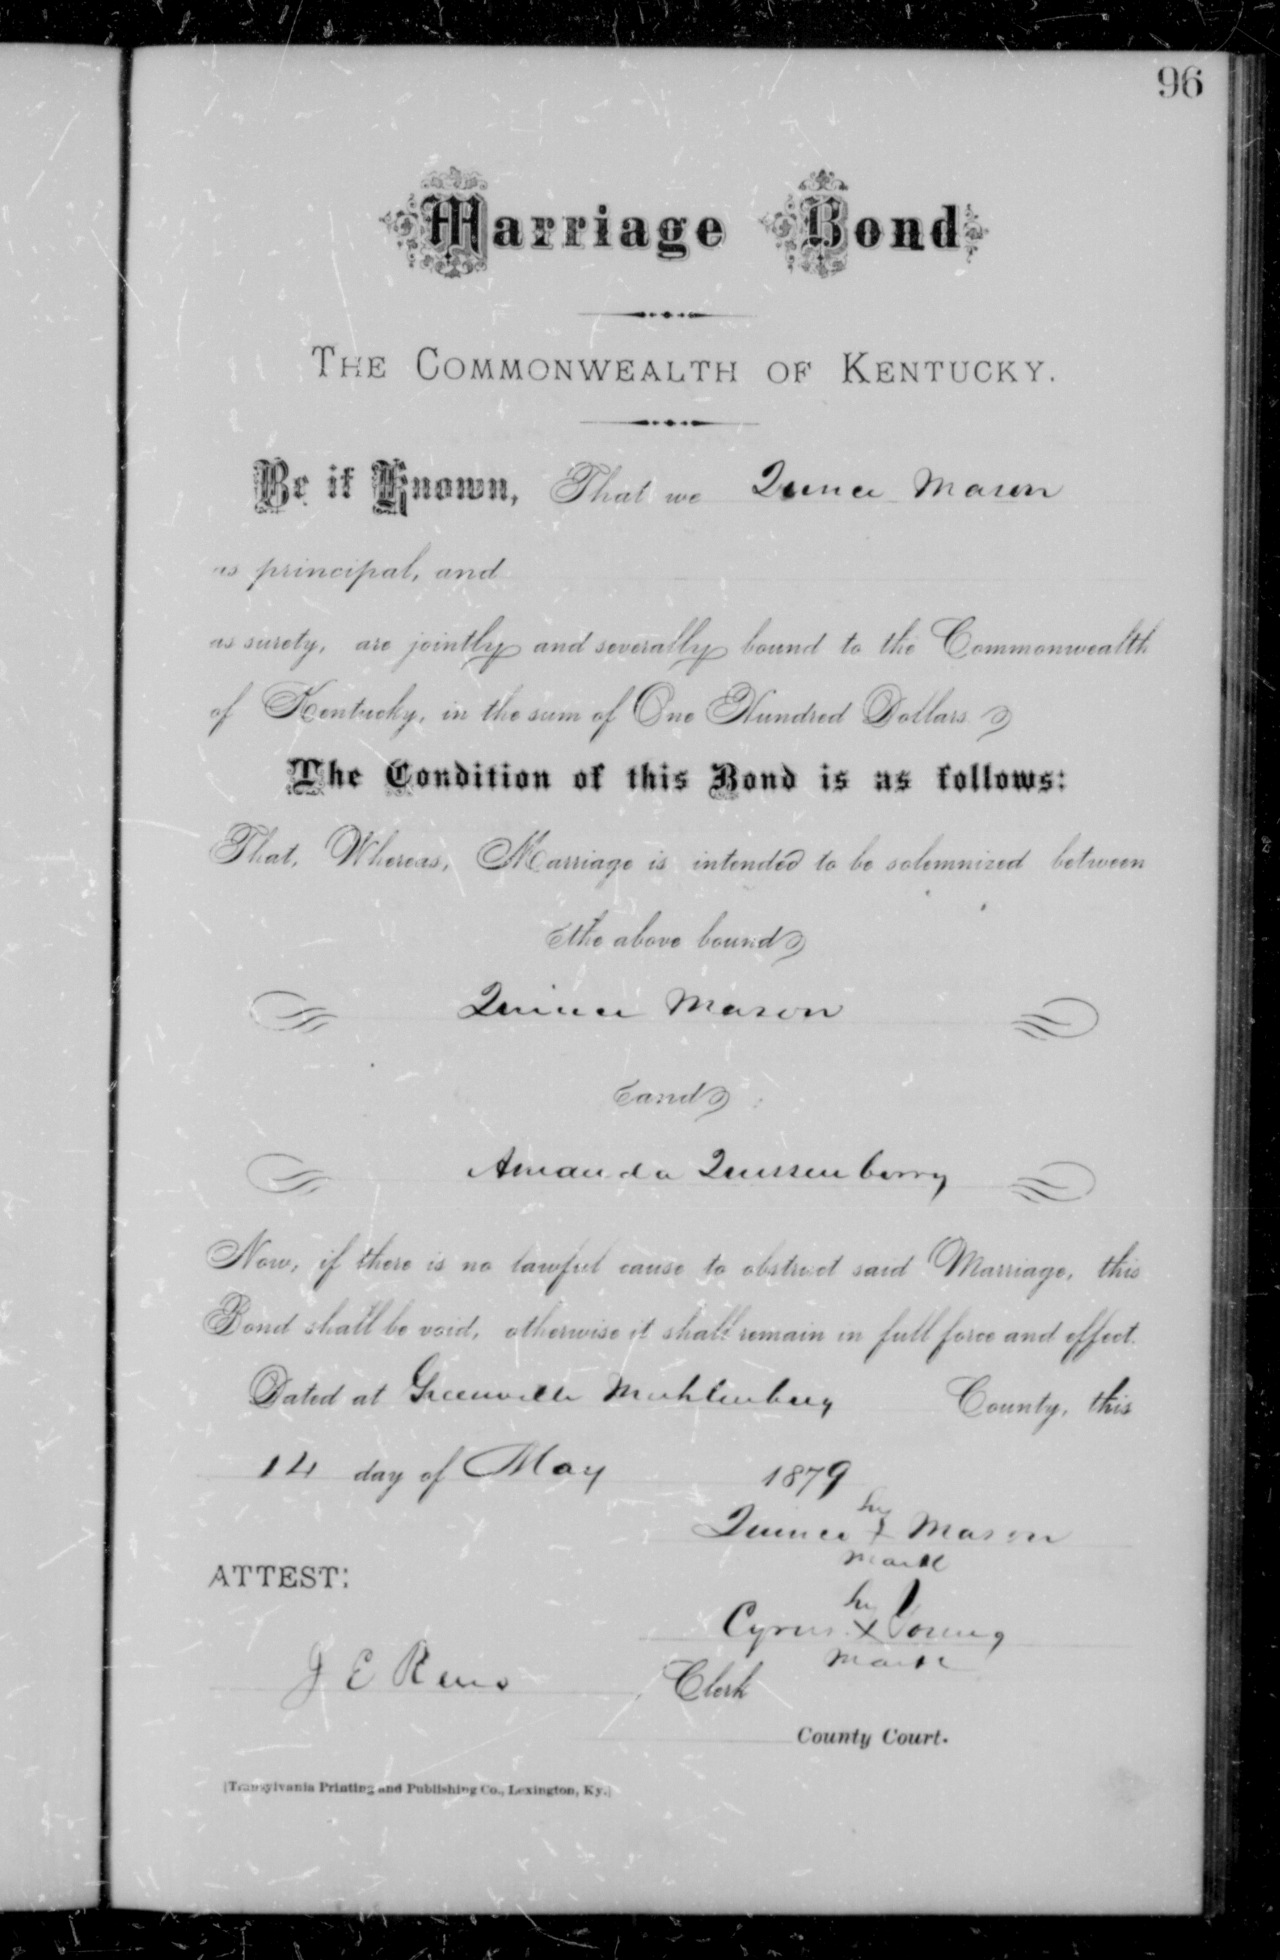 96
Marriage Bond
THE COMMONWEALTH OF KENTUCKY.
Be it Known, That we Quince Mason
as principal, and
as surety, are jointly and severally bound to the Commonwealth
of Kentucky, in the sum of One Hundred Dollars.
The Condition of this Bond is as follows:
That, Whereas, Marriage is intended to be solemnized between
the above bound
Quince Mason
and
Amanda Quissenberry
Now, if there is no lawful cause to obstruct said Marriage, this
Bond shall be void, otherwise it shall remain in full force and effect.
Dated at Greenville Muhlenburg County, this
14 day of May 1879
his
Quince X Mason
mark
ATTEST:
his
Cyrus X Young
mark
J E Reno, Clerk
County Court.
[Transylvania Printing and Publishing Co., Lexington, Ky.]